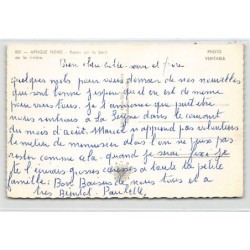 AFRIQUE NOIRE - Repos sur le bord
de la rivière
PHOTO
VERITABLE
Bien chère petite sœur et frère
quelques mots pour vous donner de nos nouvelles
qui sont bonne j'espère qu'il en est de même
pour vous tous. Je t'annonce que peut être
nous rentrons à la Seyne dans le courant
du mois d'Août. Marcel n'apprend pas volontiers
le métier de menuisier alors l'on ne peut pas
rester comme cela quand je serai fixé je
t'écrirais grosses caresses à toute la petite
famille. Bons Baisers de nous tous et à
très Bientôt Paulette